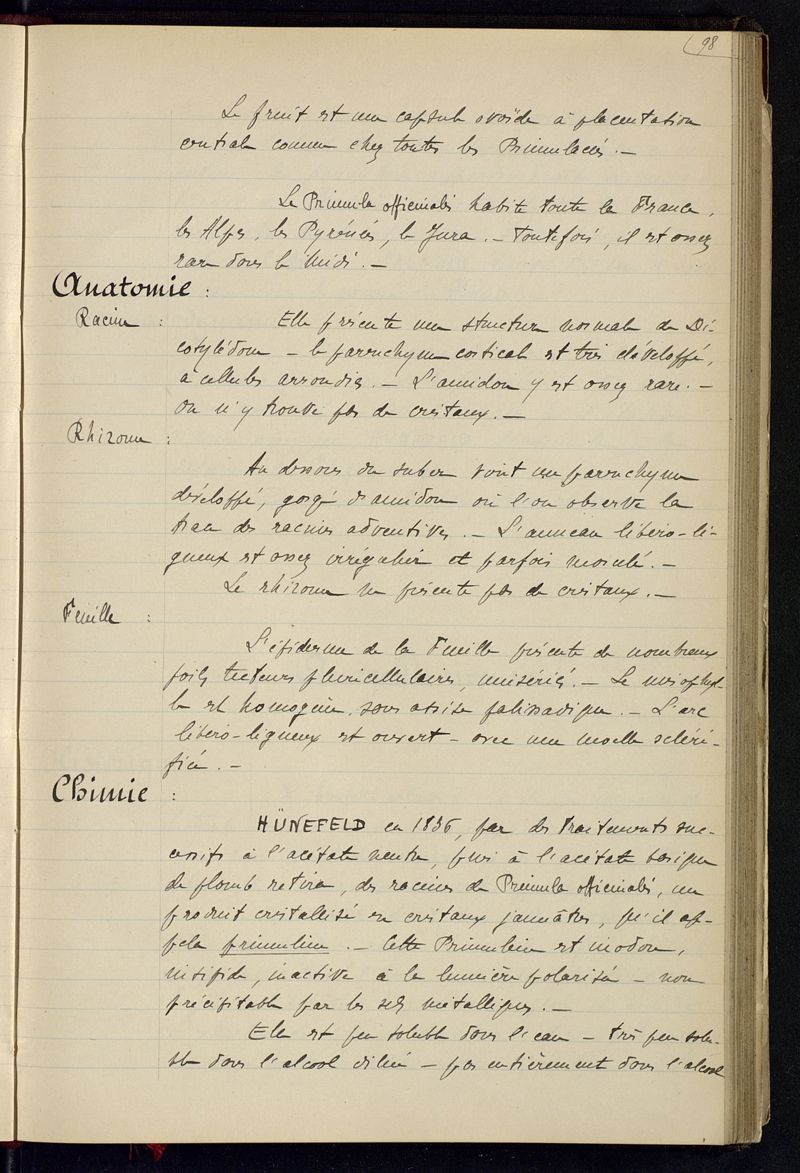 98
Le fruit est une capsule ovoïde à placentation
centrale comme chez toutes les Primulacées. —
Le Primula officinalis habite toute la France,
les Alpes, les Pyrénées, le Jura. — Toutefois, il est assez
rare dans le Midi. —
Anatomie :
Racine :
Elle présente une structure normale de Di-
cotylédone — le parenchyme cortical est très développé,
à cellules arrondies. — L'amidon y est assez rare. —
on n'y trouve pas de cristaux. —
Rhizome :
Au dessous du suber vient un parenchyme
développé, gorgé d'amidon où l'on observe la
trace des racines adventives. — L'anneau libéro-li-
gneux est assez irrégulier et parfois morcelé. —
Le rhizome ne présente pas de cristaux. —
Feuille :
L'épiderme de la Feuille présente de nombreux
poils tecteurs pluricellulaires, unisériés. — Le mésophyl-
le est homogène, sans assise palissadique. — L'arc
libéro-ligneux est ouvert — avec une moelle scléri-
fiée. —
Chimie :
HÜNEFELD en 1836, par des traitements suc-
cessifs à l'acétate neutre, puis à l'acétate basique
de plomb retira, des racines de Primula officinalis, un
produit cristallisé en cristaux jaunâtres, qu'il ap-
pela primuline. — Cette Primuline est inodore,
insipide, inactive à la lumière polarisée — non
précipitable par les sels métalliques. —
Elle est peu soluble dans l'eau — très peu solu-
ble dans l'alcool dilué — pas entièrement dans l'alcool